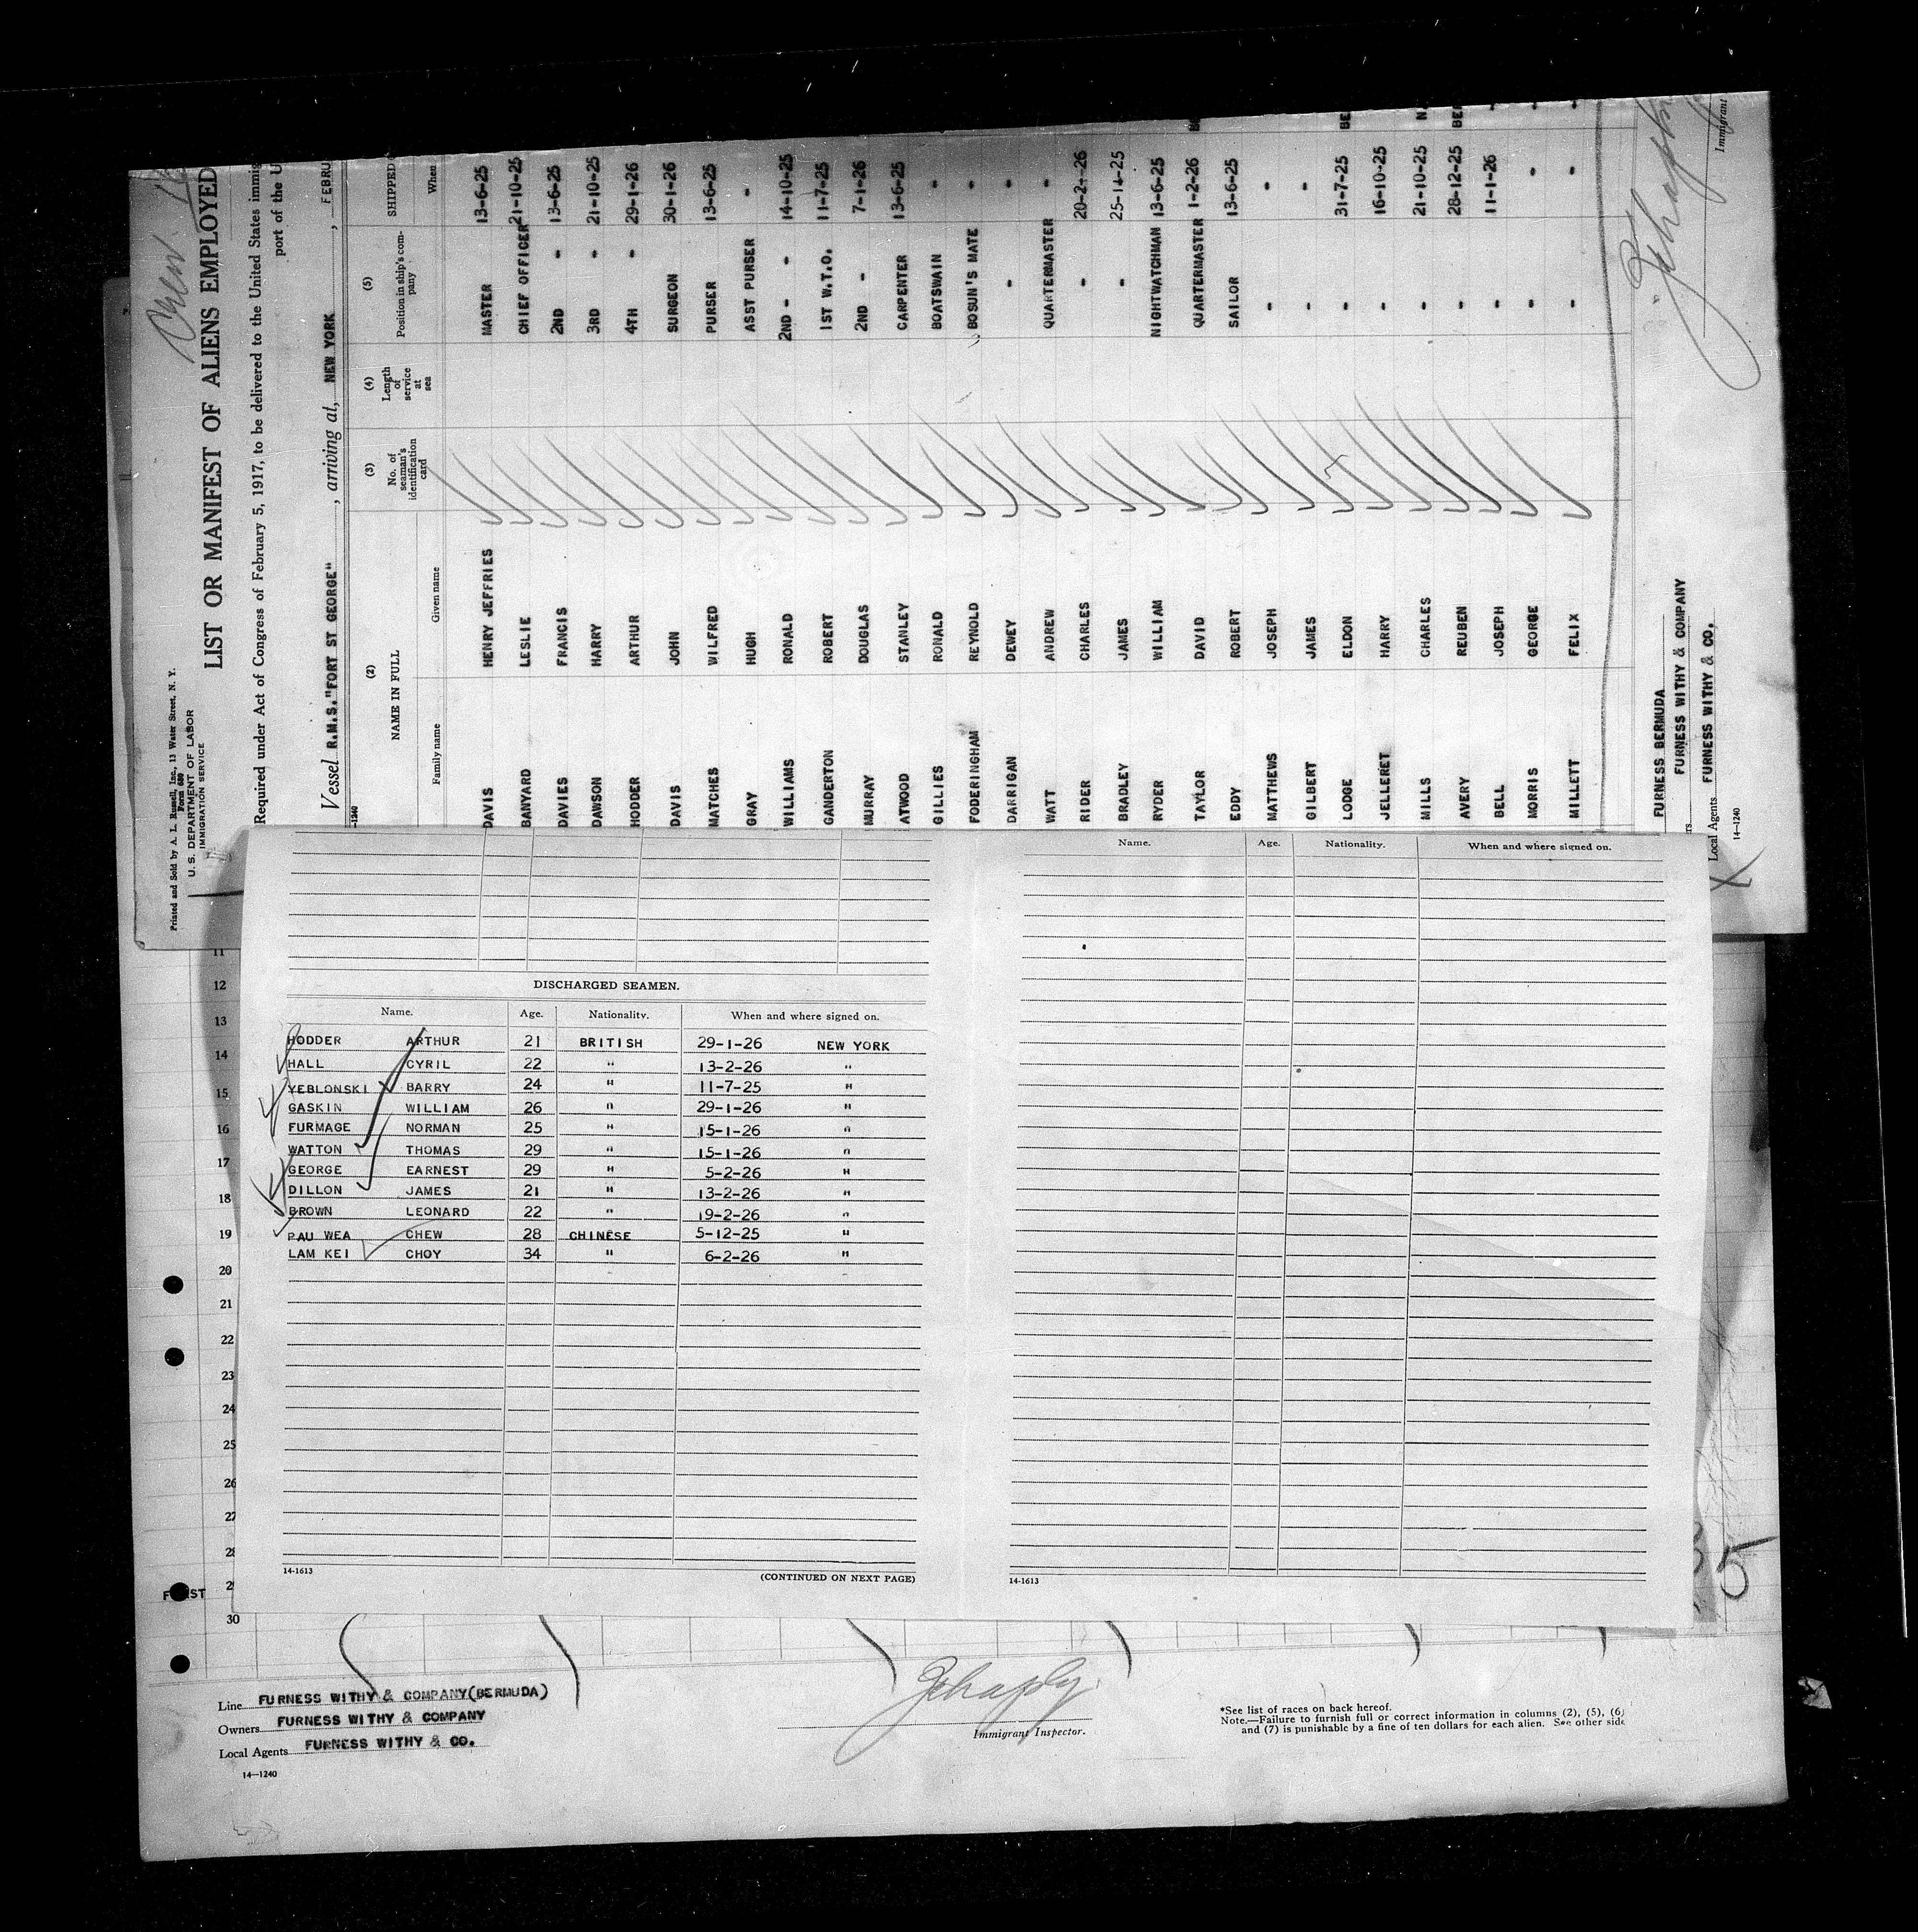 Crew
Printed and Sold by A. L. Russell, Inc., 13 Water Street, N. Y.
Form 680
U. S. DEPARTMENT OF LABOR
IMMIGRATION SERVICE
LIST OR MANIFEST OF ALIENS EMPLOYED
Required under Act of Congress of February 5, 1917, to be delivered to the United States immig
port of the U
Vessel R.M.S."FORT ST GEORGE" , arriving at, NEW YORK , FEBRU
-1240
(2) (3) (4) (5) SHIPPED
NAME IN FULL No. of seaman's identification card Length of service at sea Position in ship's company When
Family name Given name
DAVIS HENRY JEFFRIES MASTER 13-6-25
BANYARD LESLIE CHIEF OFFICER 21-10-25
DAVIES FRANCIS 2ND - 13-6-25
DAWSON HARRY 3RD - 21-10-25
HODDER ARTHUR 4TH - 29-1-26
DAVIS JOHN SURGEON 30-1-26
MATCHES WILFRED PURSER 13-6-25
GRAY HUGH ASST PURSER -
WILLIAMS RONALD 2ND - - 14-10-25
GANDERTON ROBERT 1ST W.T.O. 11-7-25
MURRAY DOUGLAS 2ND - 7-1-26
ATWOOD STANLEY CARPENTER 13-6-25
GILLIES RONALD BOATSWAIN -
FODERINGHAM REYNOLD BOSUN'S MATE -
DARRIGAN DEWEY - -
WATT ANDREW QUARTERMASTER -
RIDER CHARLES - 20-2-26
BRADLEY JAMES - 25-11-25
RYDER WILLIAM NIGHTWATCHMAN 13-6-25
TAYLOR DAVID QUARTERMASTER 1-2-26
EDDY ROBERT SAILOR 13-6-25
MATTHEWS JOSEPH - -
GILBERT JAMES - -
LODGE ELDON - 31-7-25 BE
JELLERET HARRY - 16-10-25
MILLS CHARLES - 21-10-25 N
AVERY REUBEN - 28-12-25 BE
BELL JOSEPH - 11-1-26 -
MORRIS GEORGE - - -
MILLETT FELIX - - -
FURNESS BERMUDA
FURNESS WITHY & COMPANY
Local Agents FURNESS WITHY & CO.
14-1240
Immigrant
Name. Age. Nationality. When and where signed on.
DISCHARGED SEAMEN.
Name. Age. Nationality. When and where signed on.
HODDER ARTHUR 21 BRITISH 29-1-26 NEW YORK
HALL CYRIL 22 " 13-2-26 "
YEBLONSKI BARRY 24 " 11-7-25 "
GASKIN WILLIAM 26 " 29-1-26 "
FURMAGE NORMAN 25 " 15-1-26 "
WATTON THOMAS 29 " 15-1-26 "
GEORGE EARNEST 29 " 5-2-26 "
DILLON JAMES 21 " 13-2-26 "
BROWN LEONARD 22 " 19-2-26 "
PAU WEA CHEW 28 CHINESE 5-12-25 "
LAM KEI CHOY 34 " 6-2-26 "
14-1613
(CONTINUED ON NEXT PAGE)
14-1613
11
12
13
14
15
16
17
18
19
20
21
22
23
24
25
26
27
28
29
30
35
Line FURNESS WITHY & COMPANY(BERMUDA)
Owners FURNESS WITHY & COMPANY
Local Agents FURNESS WITHY & CO.
14-1240
Immigrant Inspector.
*See list of races on back hereof.
Note.—Failure to furnish full or correct information in columns (2), (5), (6)
and (7) is punishable by a fine of ten dollars for each alien. See other side